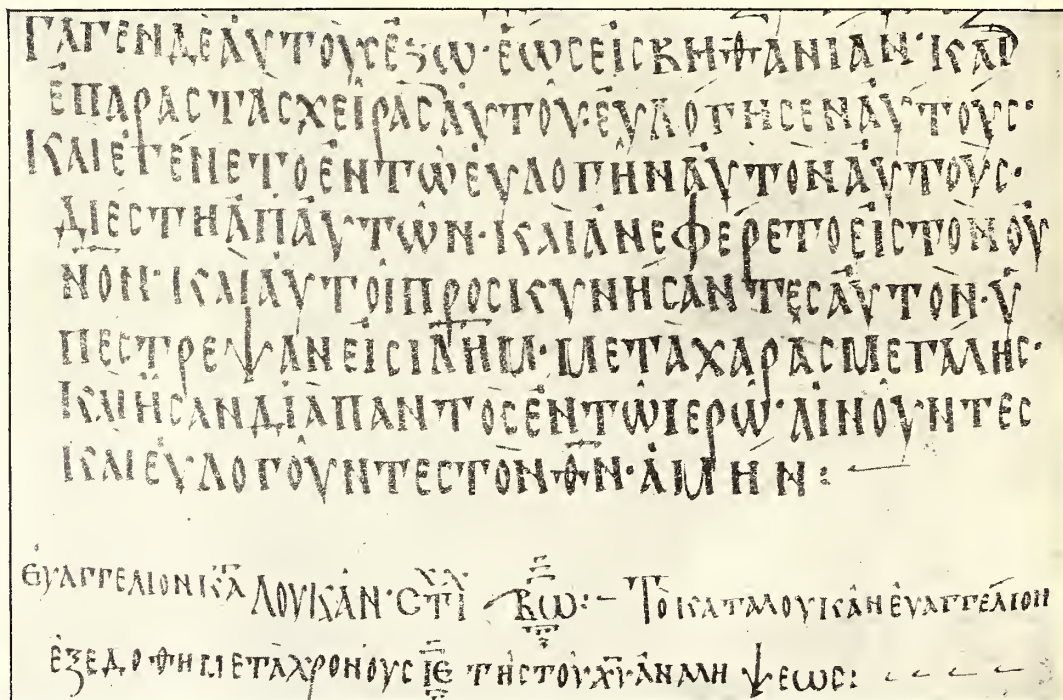 ΓΑΓΕΝΔΕΑΥΤΟΥΣΕΞΩ·ΕΩΣΕΙΣΒΗΘΑΝΙΑΝ·ΚΑΙ
ἘΠΑΡΑΣΤΑΣΧΕΙΡΑΣΑΥΤΟΥ·ΕΥΛΟΓΗΣΕΝΑΥΤΟΥΣ·
ΚΑΙΕΓΕΝΕΤΟΕΝΤΩΕΥΛΟΓΗΝΑΥΤΟΝΑΥΤΟΥΣ·
ΔΙΕΣΤΗΑΠΑΥΤΩΝ·ΚΑΙΑΝΕΦΕΡΕΤΟΕΙΣΤΟΝΟΥ
ΝΟΝ·ΚΑΙΑΥΤΟΙΠΡΟΣΚΥΝΗΣΑΝΤΕΣΑΥΤΟΝ·Υ
ΠΕΣΤΡΕΨΑΝΕΙΣΙΛΗΜ·ΜΕΤΑΧΑΡΑΣΜΕΓΑΛΗΣ·
ΚΑΙΗΣΑΝΔΙΑΠΑΝΤΟΣΕΝΤΩΙΕΡΩ·ΑΙΝΟΥΝΤΕΣ
ΚΑΙΕΥΛΟΓΟΥΝΤΕΣΤΟΝΘΝ·ΑΜΗΝ:
ΕΥΑΓΓΕΛΙΟΝΚΑΤΑ ΛΟΥΚΑΝ·ΣΤΙΧΧ ΒΩ:– ΤΟΚΑΤΑΛΟΥΚΑΝΕΥΑΓΓΕΛΙΟΝ
ΕΞΕΔΟΘΗΜΕΤΑΧΡΟΝΟΥΣ ΙΕ ΤΗΣΤΟΥΧΥΑΝΑΛΗΨΕΩΣ: